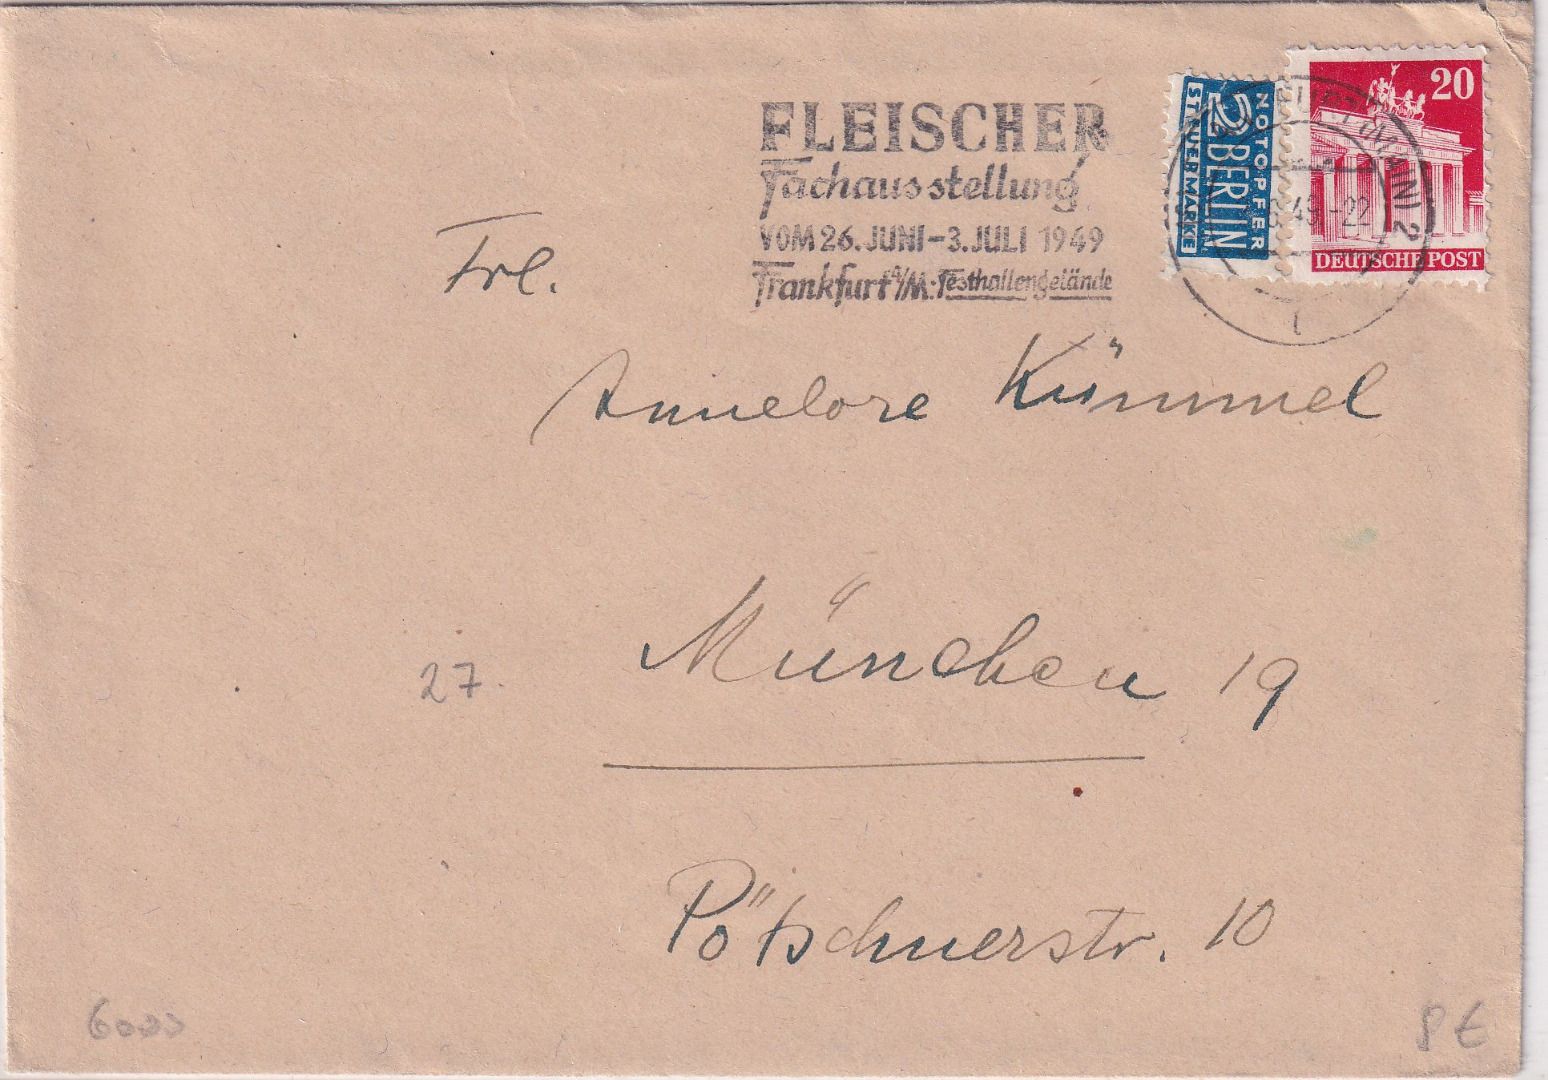 FLEISCHER
Fachausstellung
VOM 26. JUNI - 3. JULI 1949
Frankfurt a/M. Festhallengelände
NOTOPFER
2 BERLIN
STEUERMARKE
20
DEUTSCHE POST
(MAIN) 2
49.-22
Frl.
Annelore Kümmel
27.
München 19
Pötschnerstr. 10
6000
8 €